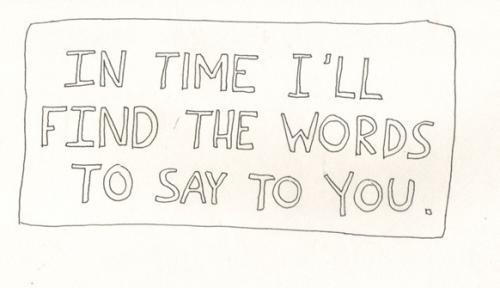 IN TIME I'LL
FIND THE WORDS
TO SAY TO YOU.